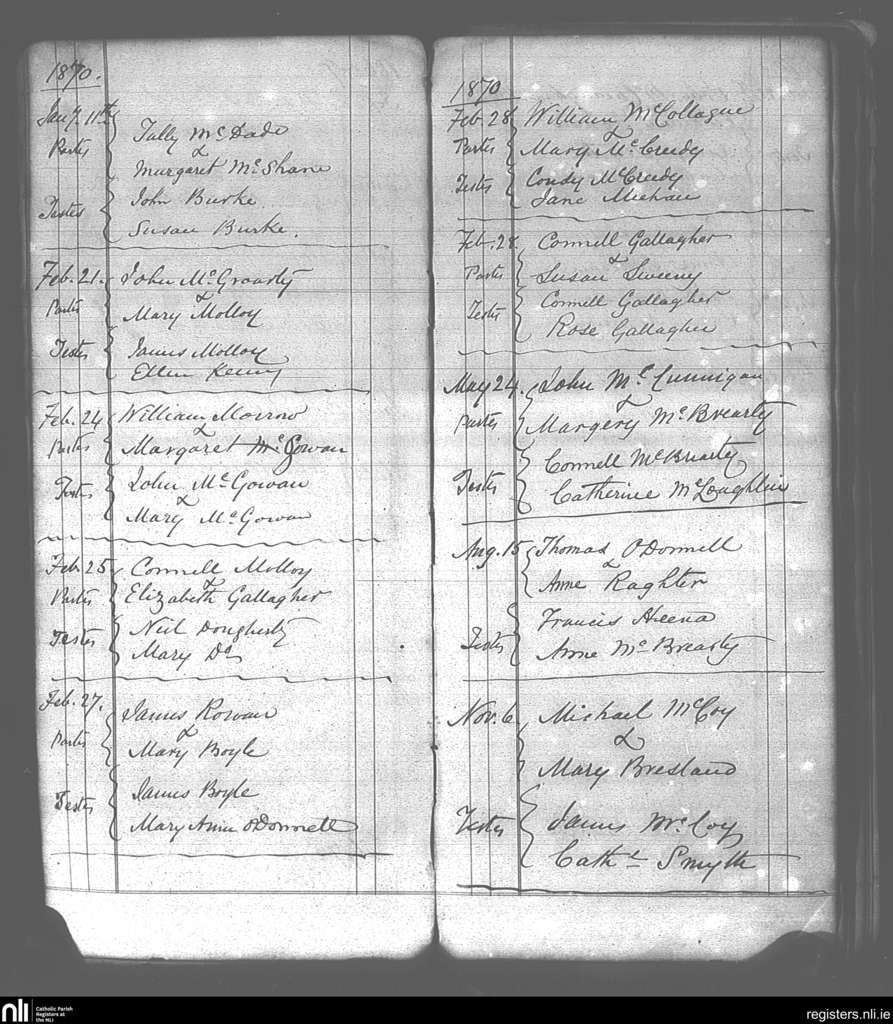 1870.
Jany. 11th Tully McDade
Partes &
Margaret McShane
Testes John Burke
Susan Burke.
Feb. 21. John McGroarty
Partes &
Mary Molloy
Testes James Molloy
Ellen Kenny
Feb. 24 William Morrow
Partes &
Margaret McGowan
Testes John McGowan
&
Mary McGowan
Feb. 25 Connell Molloy
&
Partes Elizabeth Gallagher
Testes Neil Dougherty
Mary Do
Feb. 27. James Rowan
Partes &
Mary Boyle
Testes James Boyle
Mary Anne O'Donnell
1870
Feb. 28 William McCollague
Partes &
Mary McCreedy
Testes Condy McCreedy
Jane Meehan
Feb. 28. Connell Gallagher
Partes &
Susan Sweeny
Testes Connell Gallagher
Rose Gallagher
May 24. John McCunnigan
Partes &
Margery McBrearty
Testes Connell McBrearty
Catherine McLoughlin
Aug. 15 Thomas O'Donnell
&
Anne Raghter
Francis Heena
Testes Anne McBrearty
Nov. 6. Michael McCoy
&
Mary Bresland
Testes James McCoy
Cath. Smyth
nli
Catholic Parish
Registers at
the NLI
registers.nli.ie